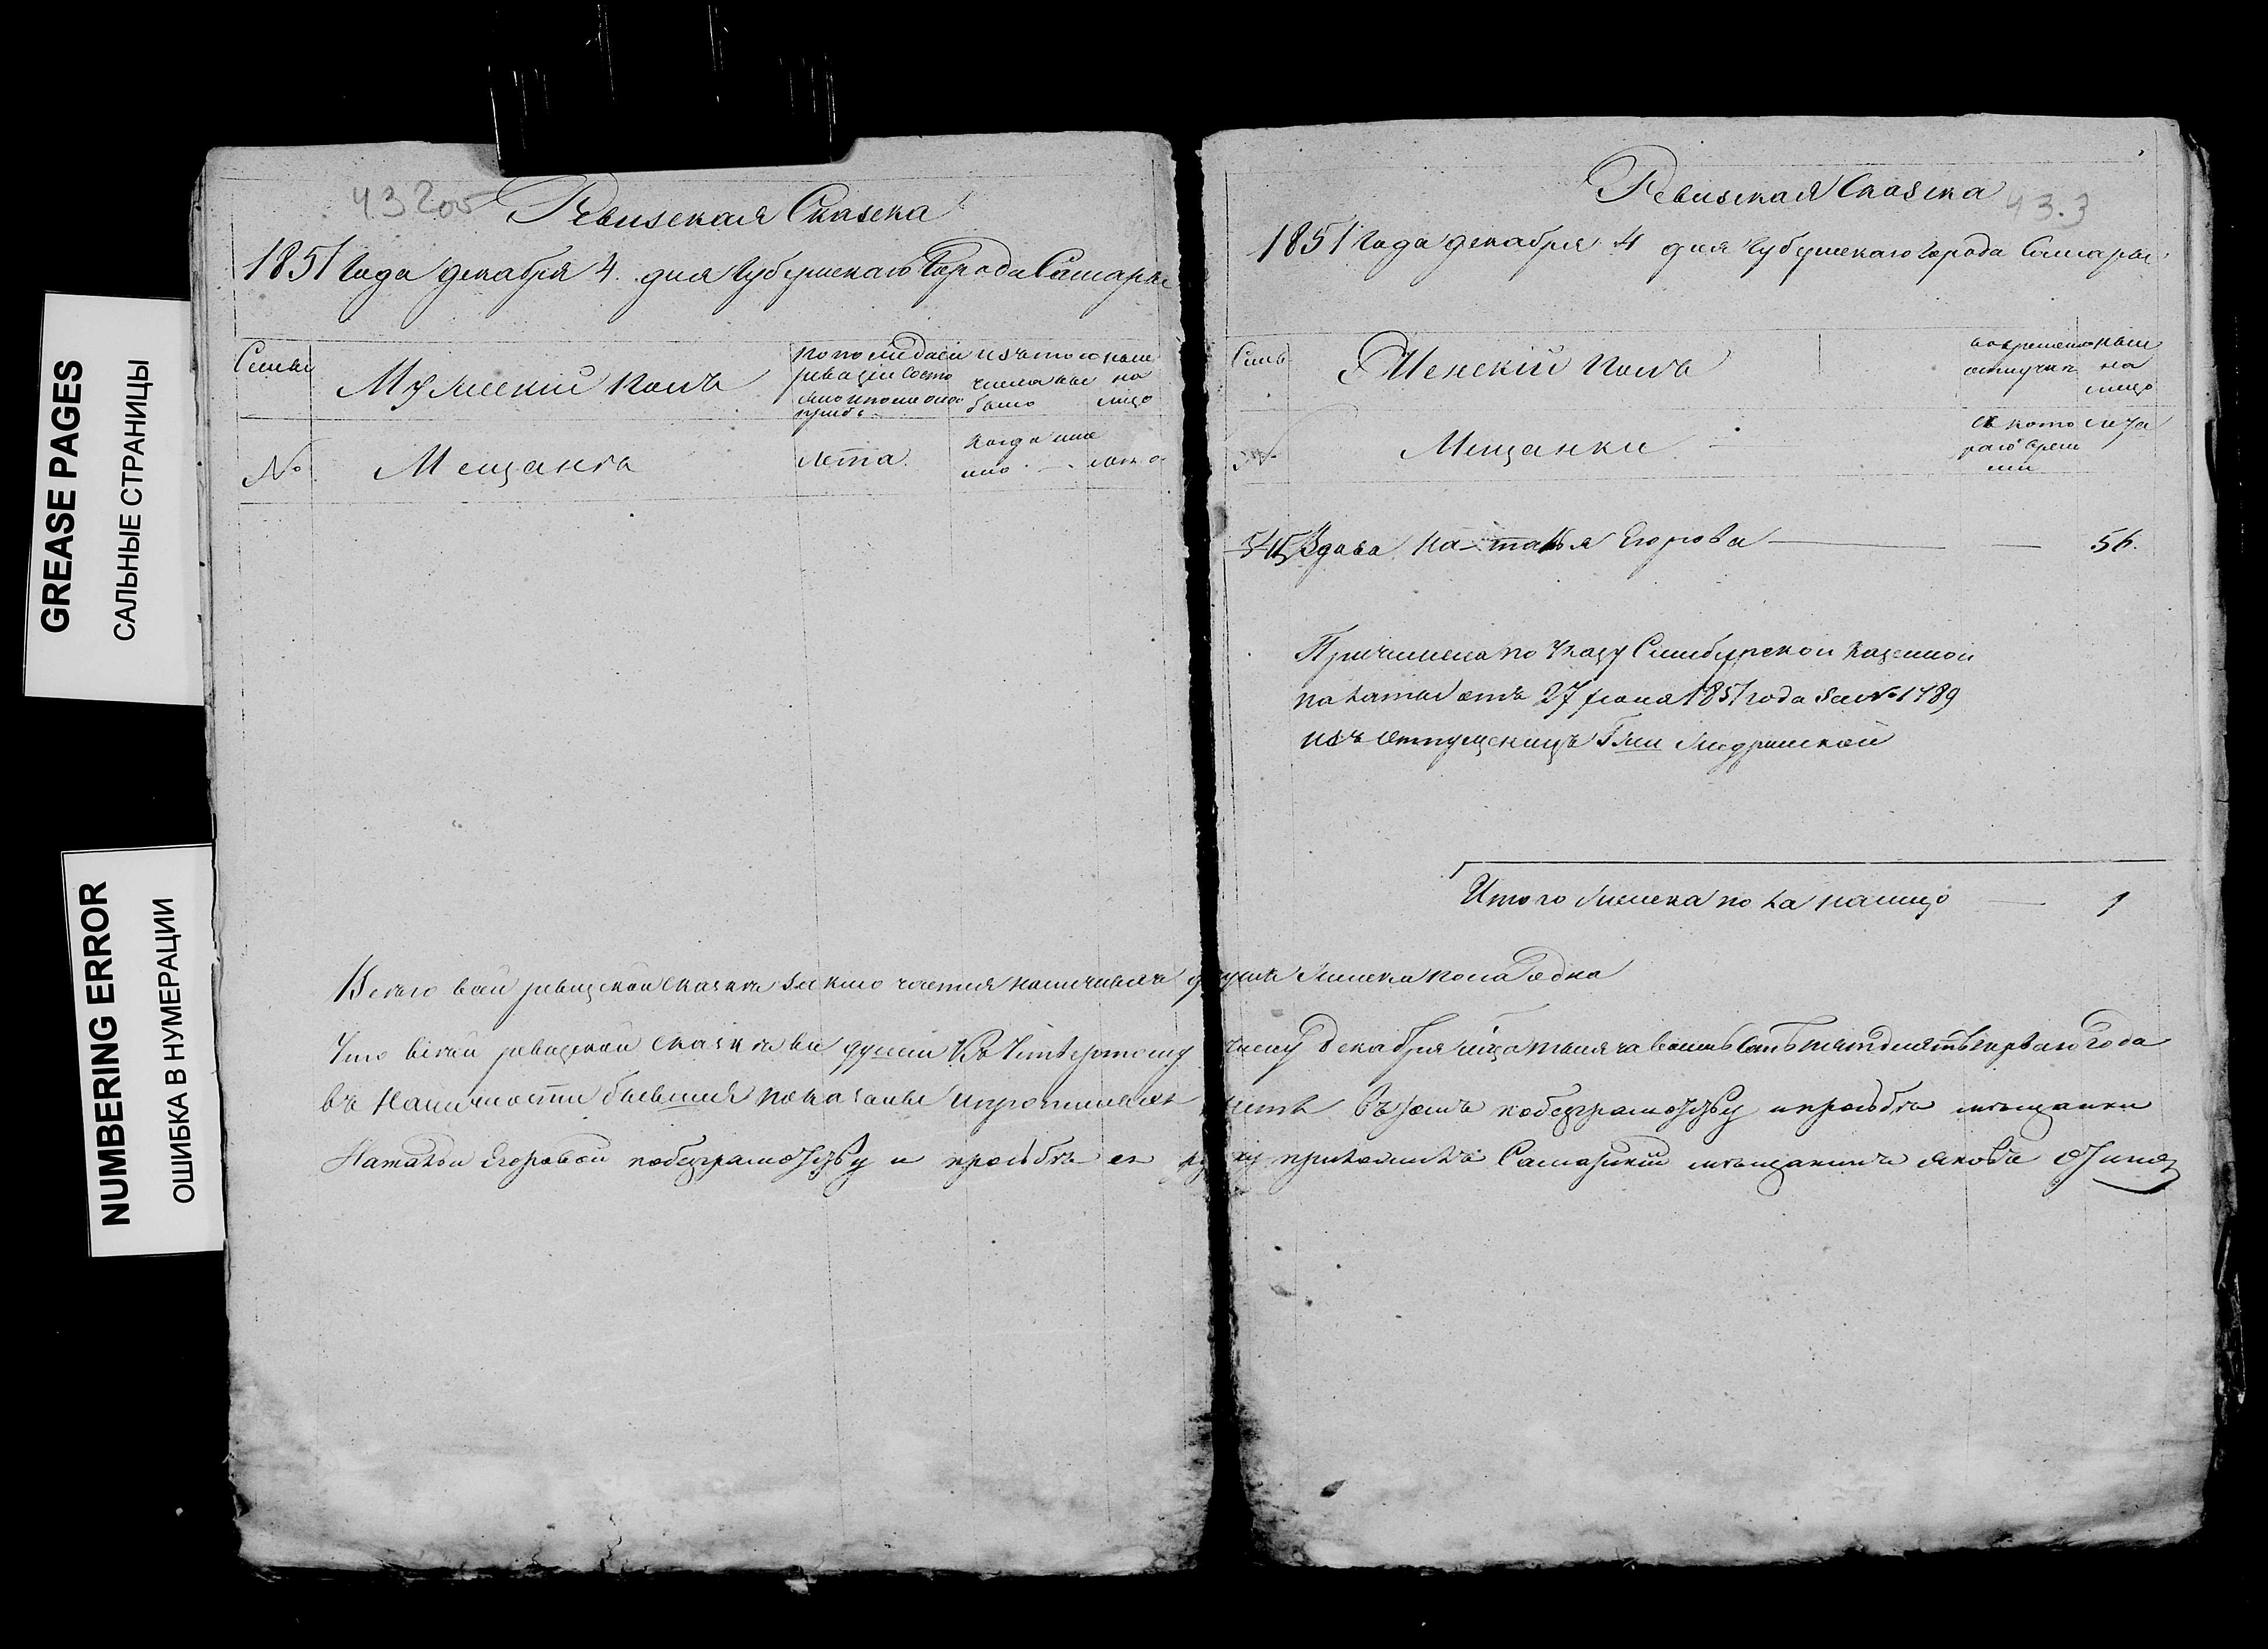 GREASE PAGES
САЛЬНЫЕ СТРАНИЦЫ
NUMBERING ERROR
ОШИБКА В НУМЕРАЦИИ
432об
Ревизская Сказка
1851 Года декабря 4. дня Губернскаго Города Самары
Семьи
Мужеский полъ
по последней ревизии состояло и после оной прибы.
изъ того числа выбыло
ныне на лицо
№
Мещанѣ
лета.
когда именно
лета
433
Ревизская Сказка
1851 Года декабря 4 дня Губернскаго Города Самары
Семьи
Женский полъ
во временной отлучкѣ
ныне на лицо
№
Мещанки
съ котораго времени
лета
545 Вдова Наталья Егорова 56.
Причислена по указу Симбирской Казенной
палаты отъ 27 июня 1851 года за № 1489
изъ отпущеницъ Гжи
Итого женска пола налицо 1
Всего в сей ревизской сказкѣ заключается наличныхъ душъ женска пола одна
Что в сей ревизской сказкѣ все души Къ Четвертому числу Декабря мца тысяча восемьсотъ пятьдесятъ перваго Года
въ наличности бывшия показаны и прописныхъ нетъ въ томъ по безграмотству и прозьбѣ мѣщанки
Натальи Егоровой по безграмотству и прозьбѣ ея руку приложилъ Самарский мѣщанинъ Яковъ